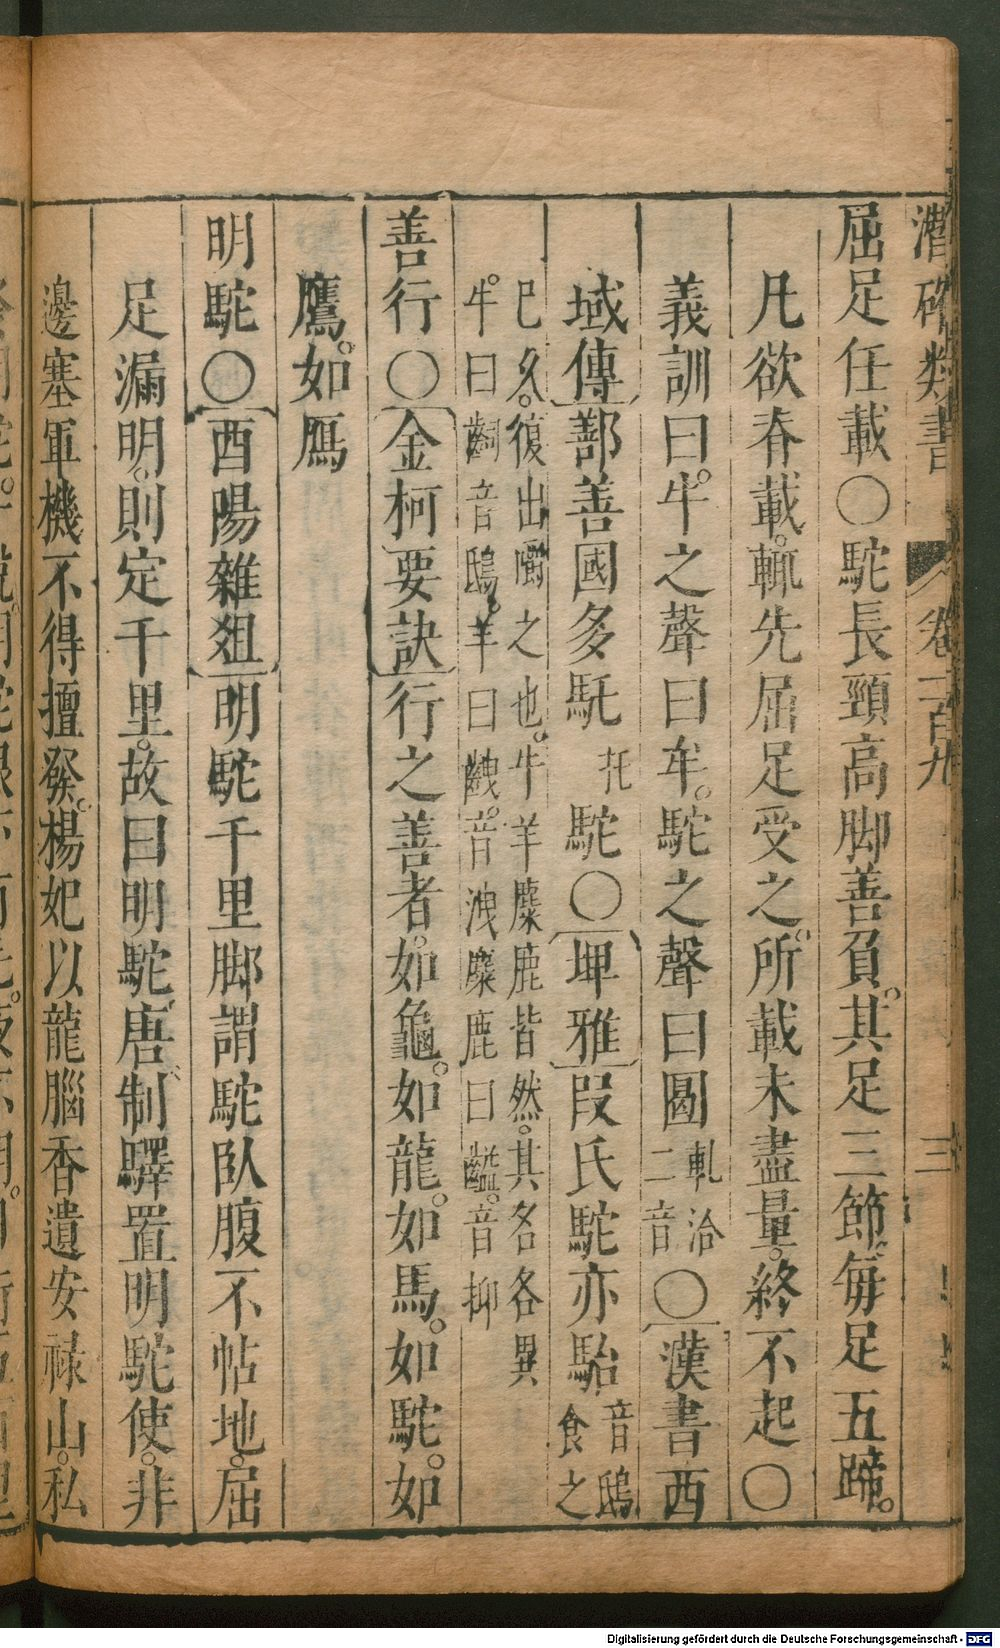 潛確類書 卷一百九 三
屈足任載○駝長頸高脚善負其足三節每足五蹄
凡欲脊載輒先屈足受之所載未盡量終不起○
義訓曰牛之聲曰牟駝之聲曰圔軋洽二音○漢書西
域傳鄯善國多馲托駝○埤雅段氏駝亦駘音鴟食之
巳久復出嚼之也牛羊麋鹿皆然其名各異
牛曰齝音鴟羊曰齥音洩麋鹿曰齸音抑
善行○金柯要訣行之善者如龜如龍如馬如駝如
鷹如鴈
明駝○酉陽雜爼明駝千里脚謂駝臥腹不帖地屈
足漏明則定千里故曰明駝唐制驛置明駝使非
邊塞軍機不得擅發楊妃以龍腦香遺安祿山私
Digitalisierung gefördert durch die Deutsche Forschungsgemeinschaft - DFG